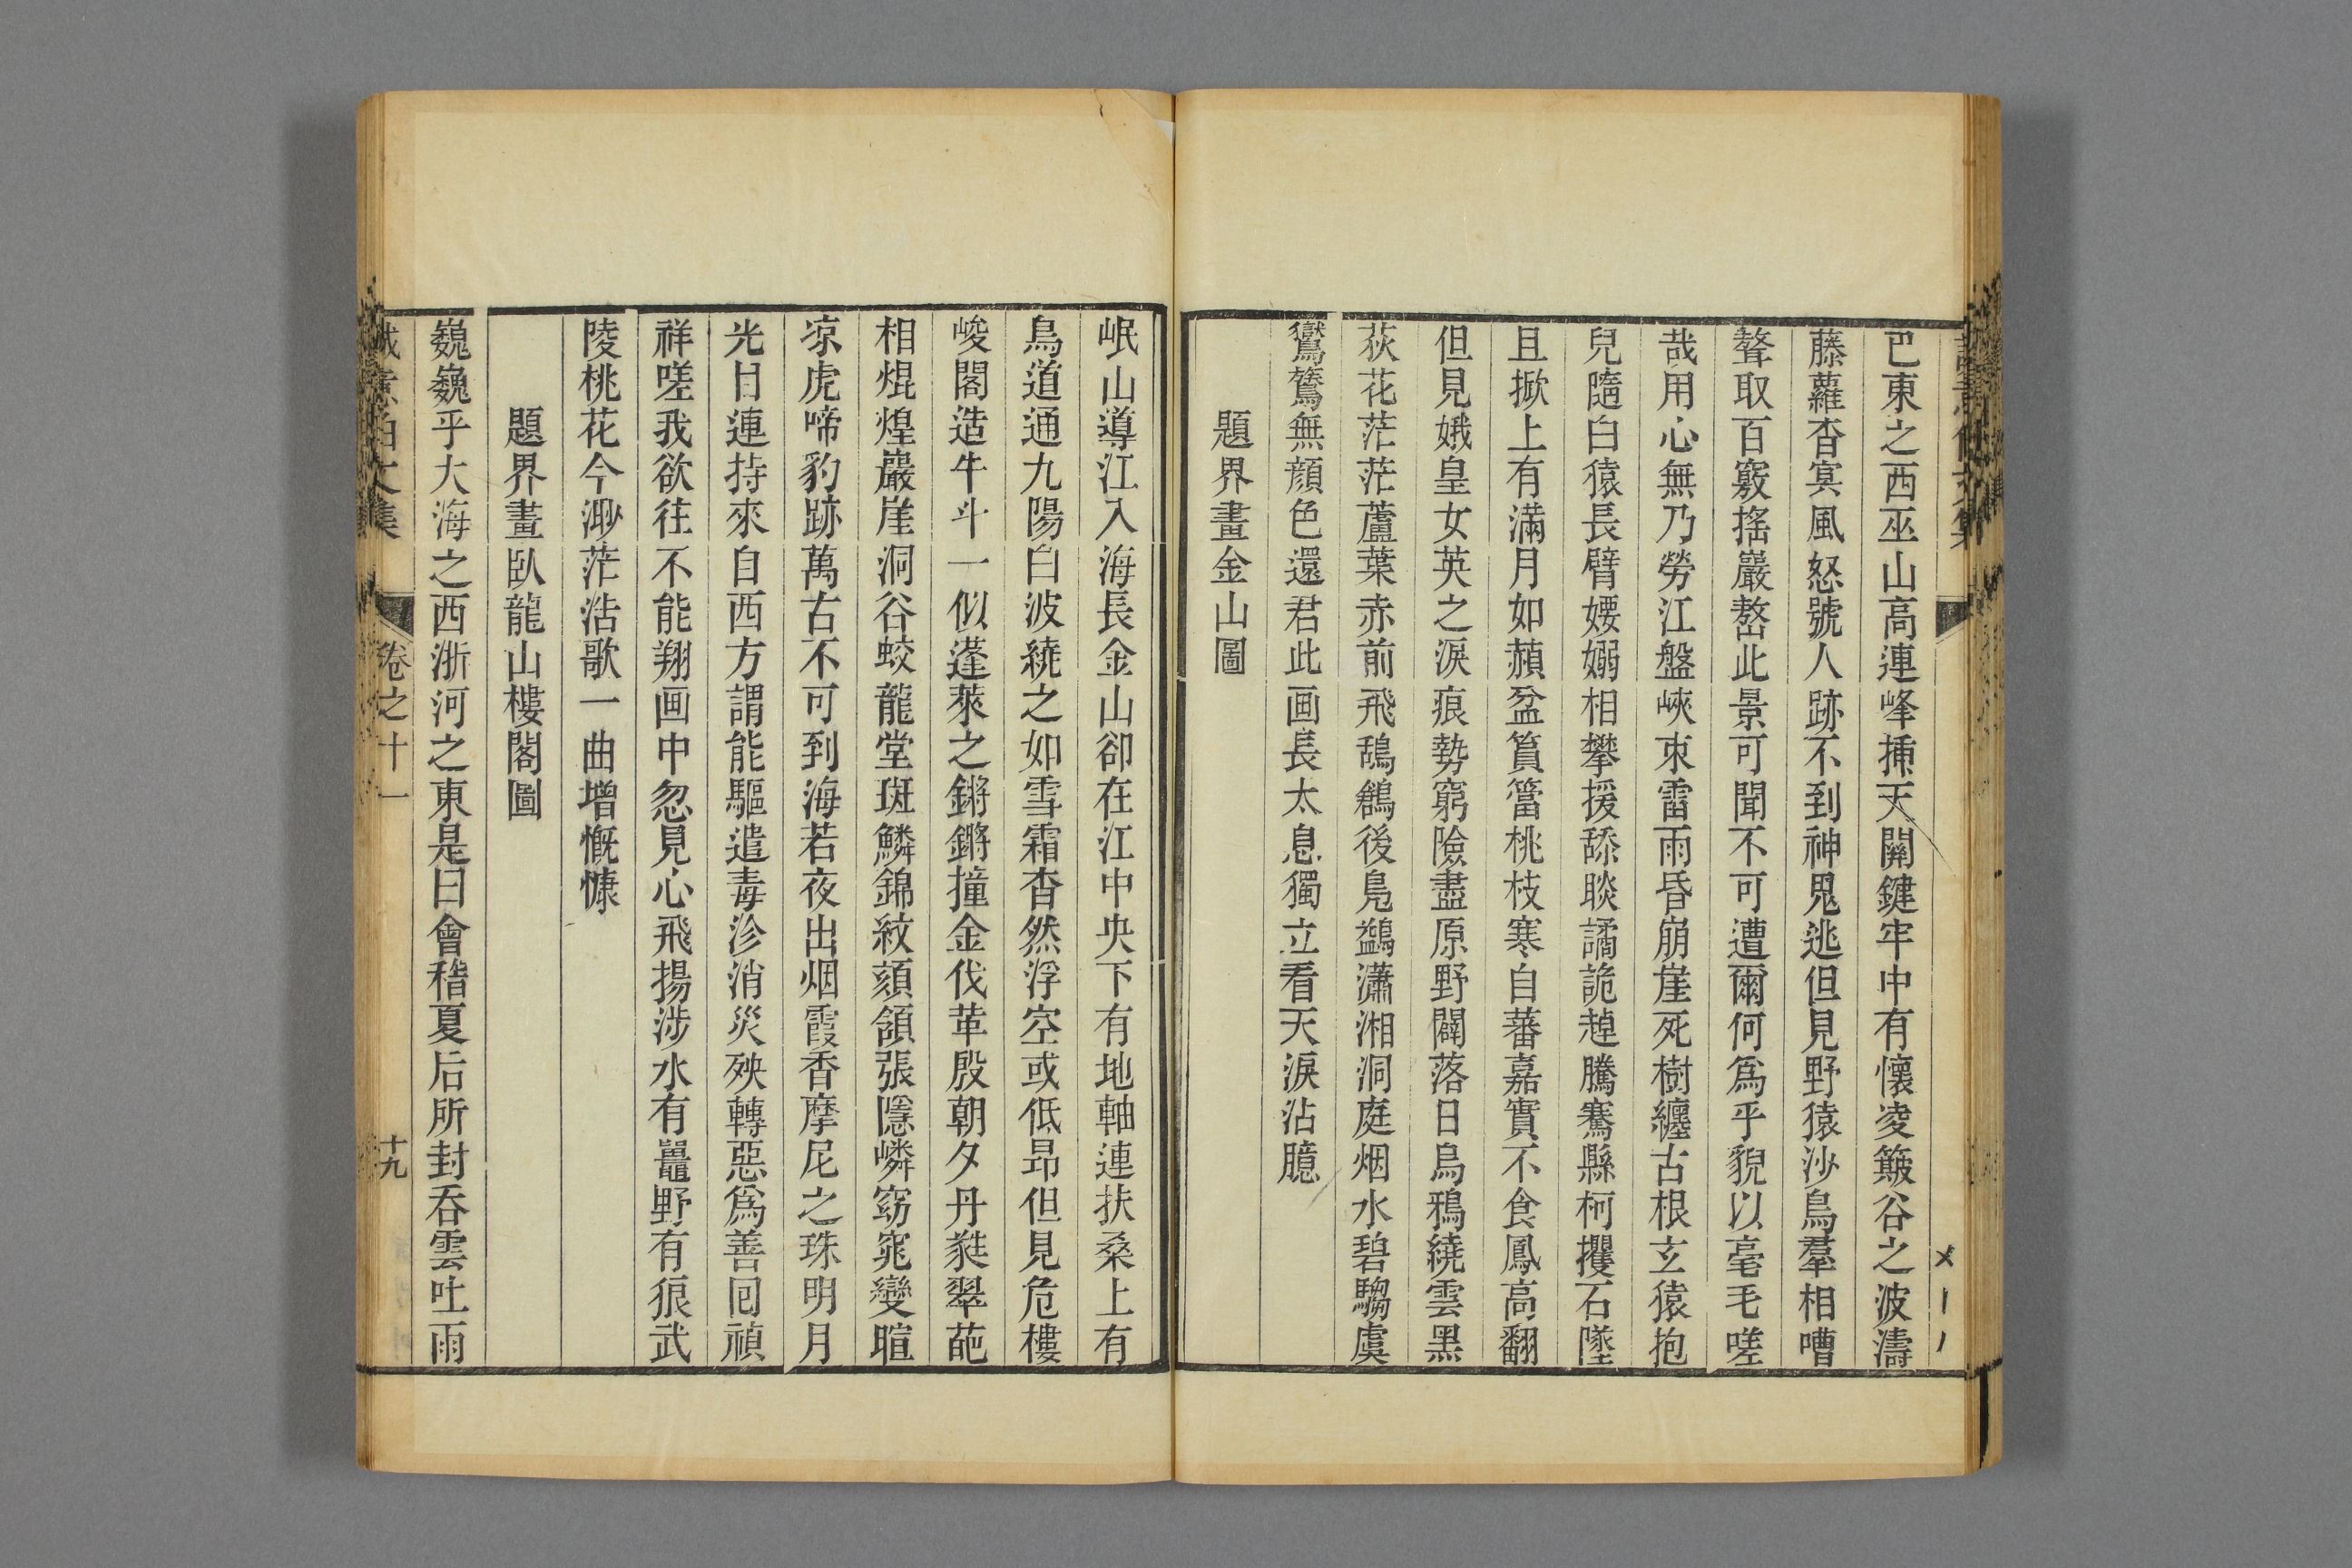 巴東之西巫山高連峰揷天關鍵牢中有懷凌簸谷之波濤
藤蘿杳冥風怒號人跡不到神鬼逃但見野猿沙鳥羣相嘈
聱取百竅搖巖嶅此景可聞不可遭爾何爲乎貌以毫毛嗟
哉用心無乃勞江盤峽束雷雨昏崩崖死樹纏古根玄猿抱
兒隨白猿長臂婹嫋相攀援舔睒譎詭趠騰騫縣柯攫石墜
且掀上有滿月如頳盆篔簹桃枝寒自蕃嘉實不食鳳高翻
但見娥皇女英之淚痕勢窮險盡原野闢落日烏鴉繞雲黑
荻花茫茫蘆葉赤前飛鴰鶬後鳧鷁瀟湘洞庭烟水碧騶虞
鸑鷟無顔色還君此画長太息獨立看天淚沾臆
題界畫金山圖
岷山導江入海長金山卻在江中央下有地軸連扶桑上有
鳥道通九陽白波繞之如雪霜杳然浮空或低昂但見危樓
峻閣造牛斗一似蓬萊之鏘鏘撞金伐革殷朝夕丹蕤翠葩
相焜煌巖崖洞谷蛟龍堂斑鱗錦紋頦頷張隱嶙窈窕變暄
凉虎啼豹跡萬古不可到海若夜出烟霞香摩尼之珠明月
光日連持來自西方謂能驅遣毒沴消災殃轉惡爲善囘禎
祥嗟我欲往不能翔画中忽見心飛揚涉水有鼉野有狼武
陵桃花今渺茫浩歌一曲增慨慷
題界畫臥龍山樓閣圖
巍巍乎大海之西浙河之東是曰會稽夏后所封吞雲吐雨
誠意伯文集
卷之十一
十九